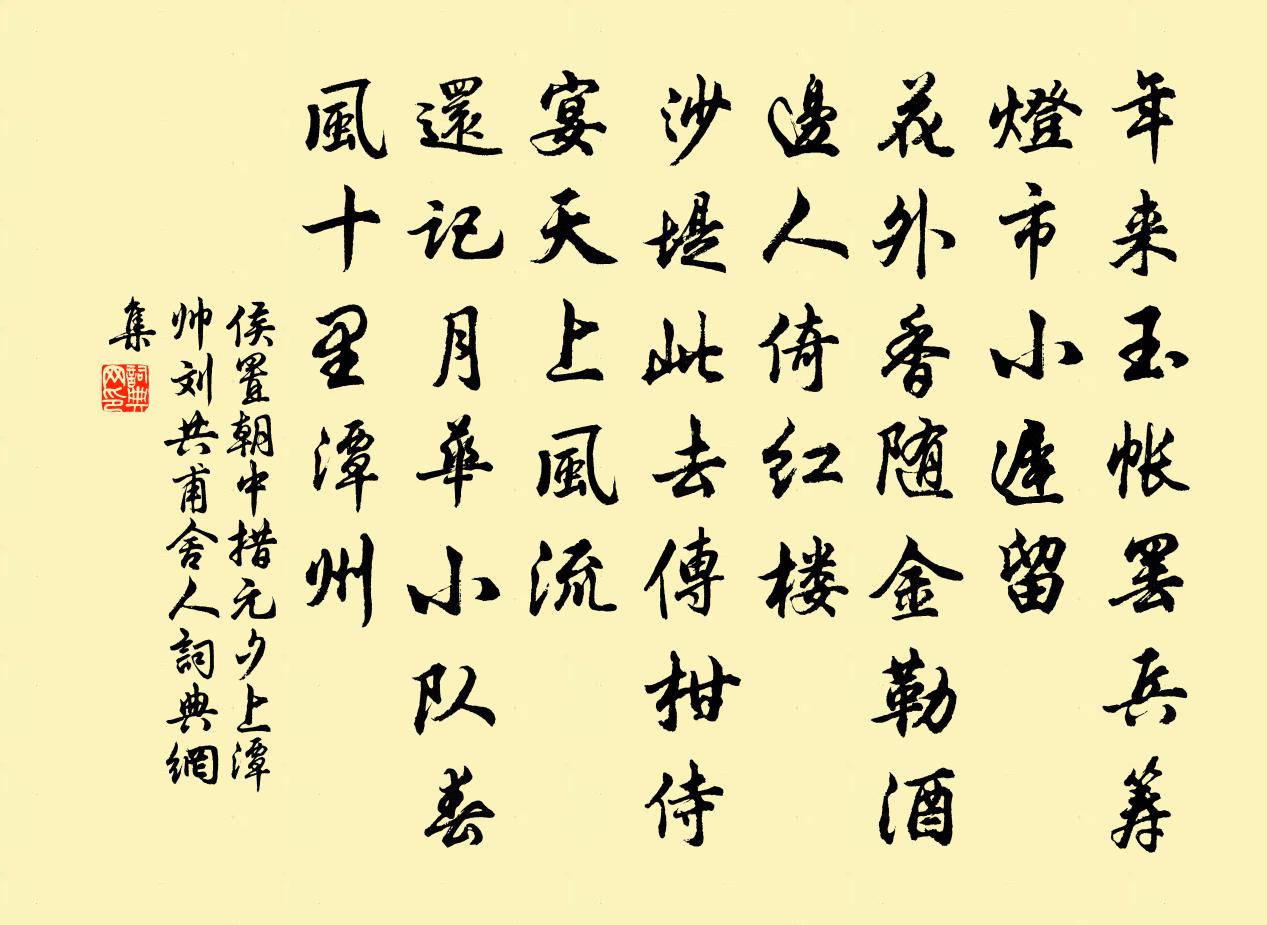 年来玉帐罢兵筹
燈市小遲留
花外香随金勒酒
邊人倚红楼
沙堤此去傳柑侍
宴天上風流
還记月華小队春
風十里潭州
侯置朝中措元夕上潭
帅刘共甫舍人詞典網
集
詞典网印